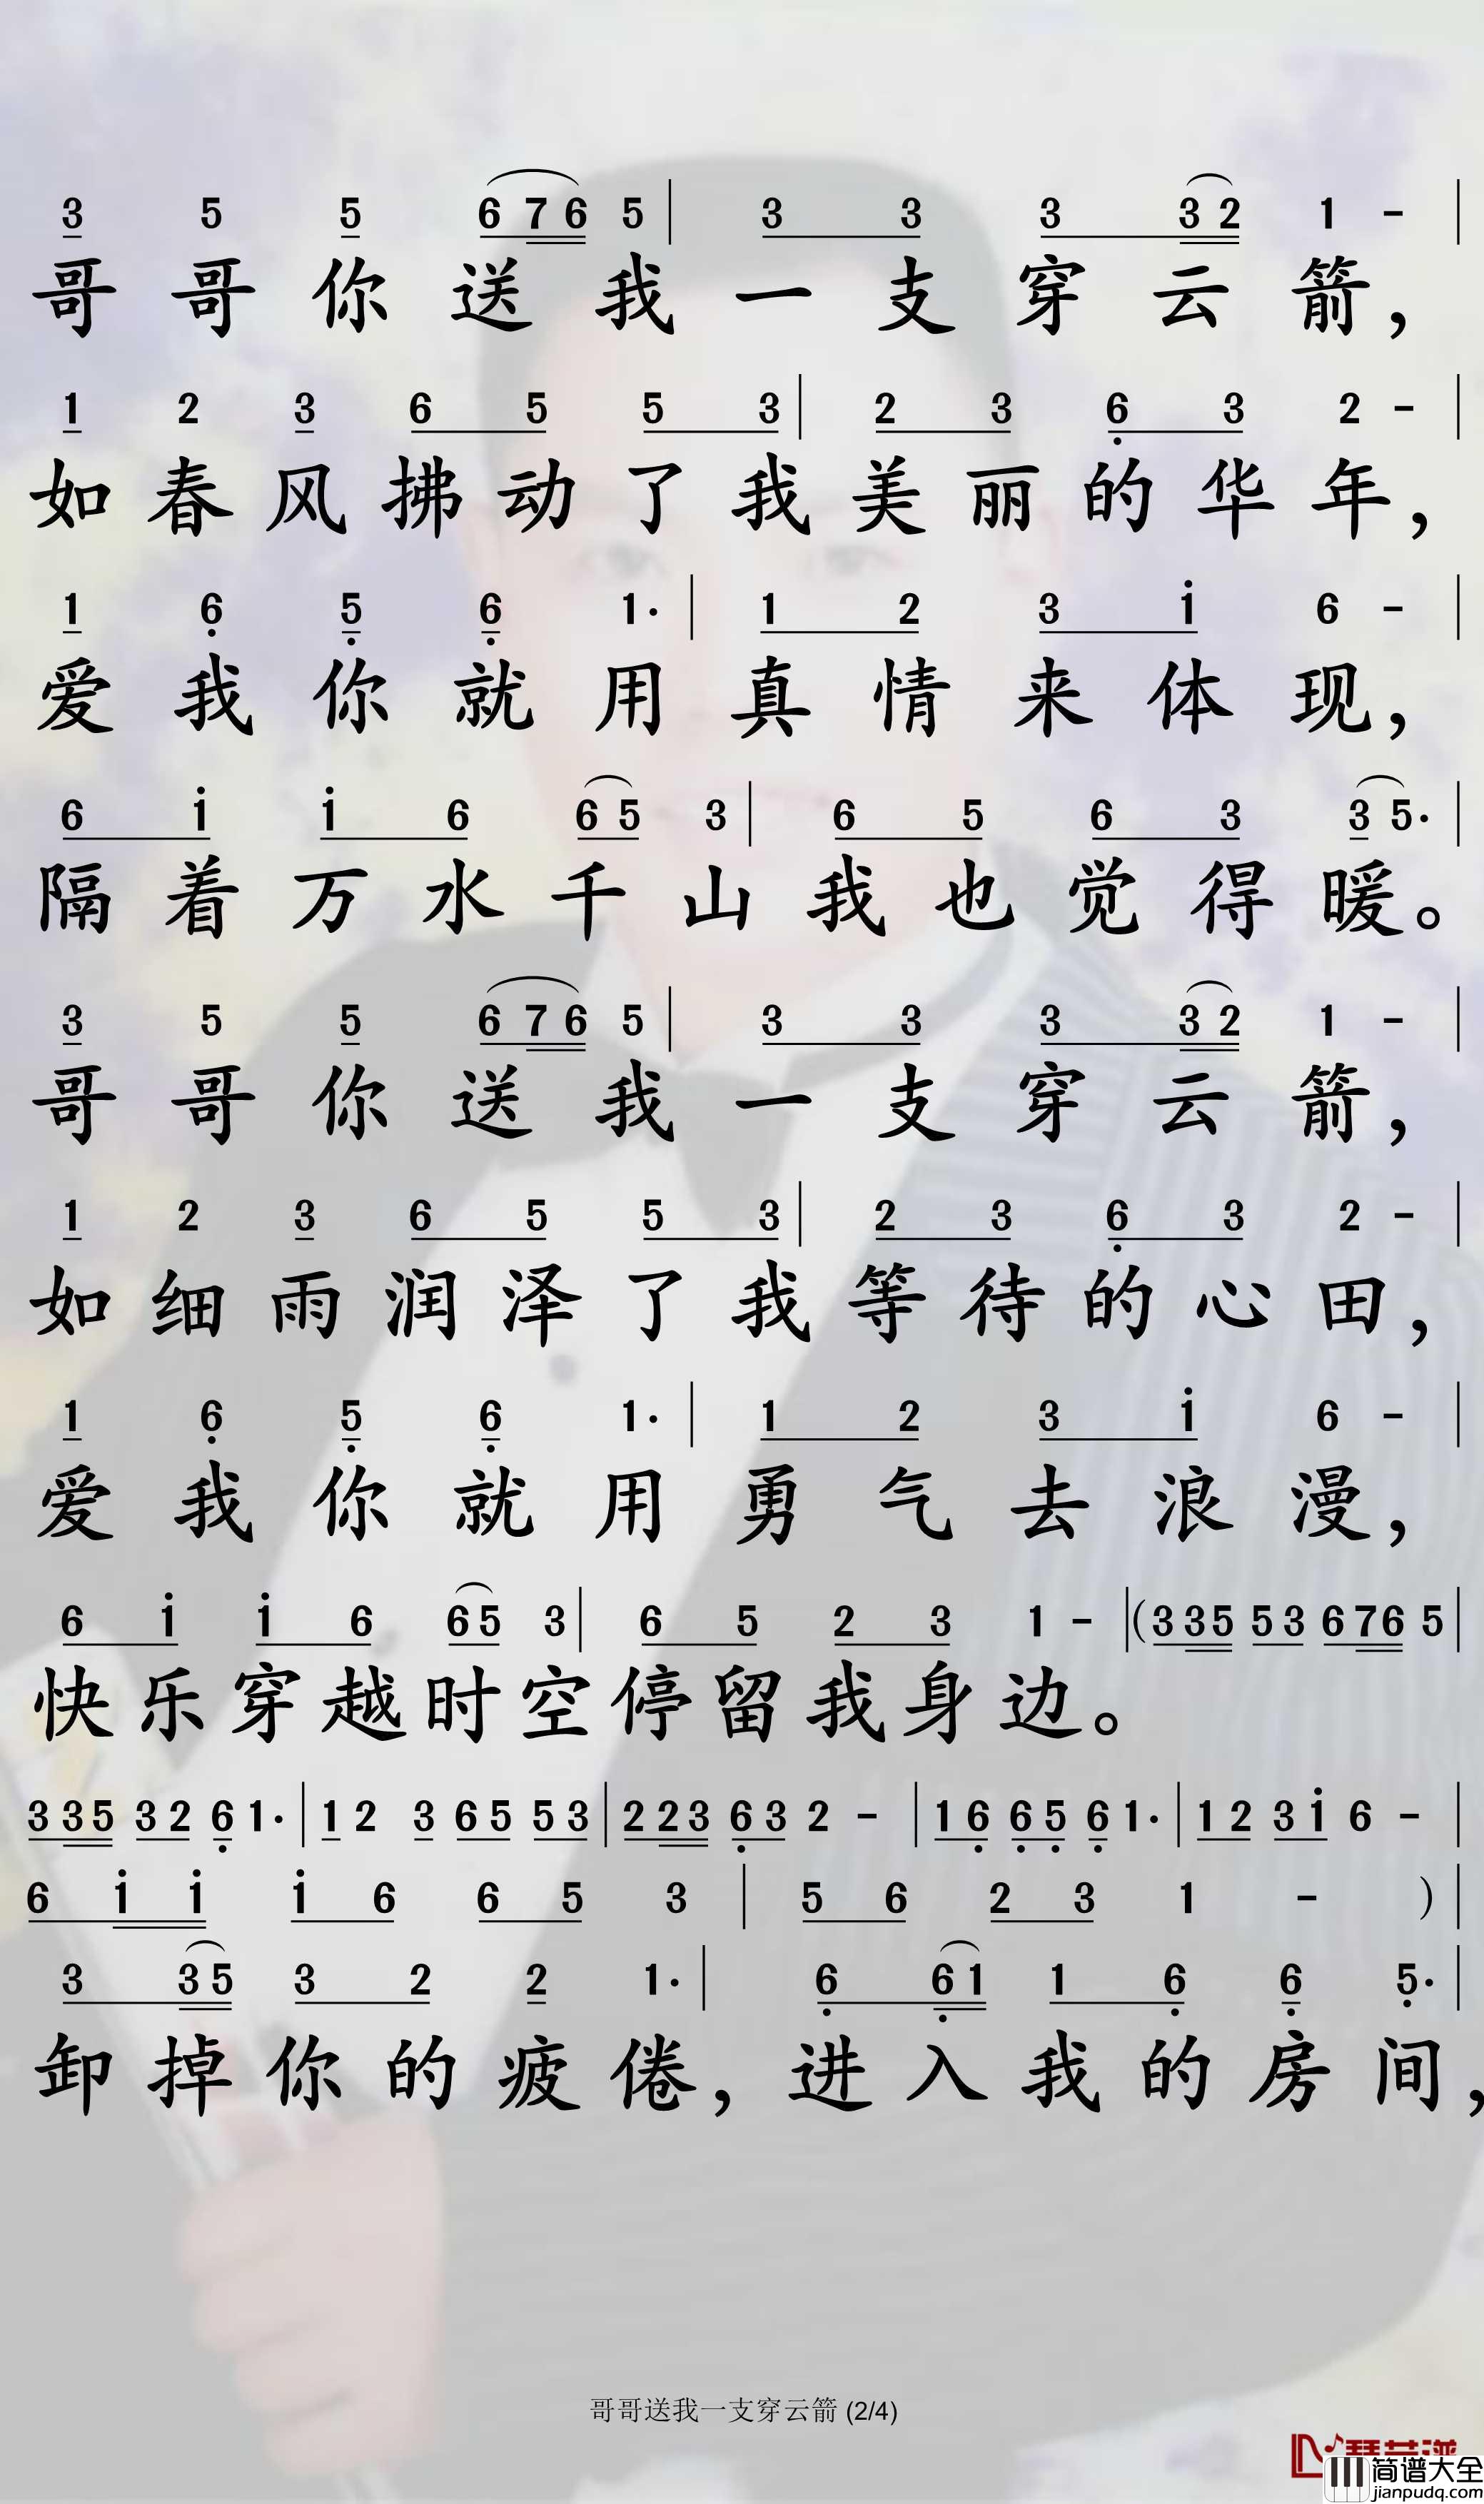 3 5 5 6 7 6 5 | 3 3 3 3 2 1 - |
哥哥你送我一支穿云箭，
1 2 3 6 5 5 3 | 2 3 6̣ 3 2 - |
如春风拂动了我美丽的华年，
1 6̣ 5̣ 6̣ 1· | 1 2 3 i 6 - |
爱我你就用真情来体现，
6 i i 6 6 5 3 | 6 5 6 3 3 5· |
隔着万水千山我也觉得暖。
3 5 5 6 7 6 5 | 3 3 3 3 2 1 - |
哥哥你送我一支穿云箭，
1 2 3 6 5 5 3 | 2 3 6̣ 3 2 - |
如细雨润泽了我等待的心田，
1 6̣ 5̣ 6̣ 1· | 1 2 3 i 6 - |
爱我你就用勇气去浪漫，
6 i i 6 6 5 3 | 6 5 2 3 1 - | (3 3 5 5 3 6 7 6 5 |
快乐穿越时空停留我身边。
3 3 5 3 2 6̣ 1· | 1 2 3 6 5 5 3 | 2 2 3 6̣ 3 2 - | 1 6̣ 6̣ 5̣ 6̣ 1· | 1 2 3 i 6 - |
6 i i i 6 6 5 3 | 5 6 2 3 1 - ) |
3 3 5 3 2 2 1· | 6̣ 6̣ 1 1 6̣ 6̣ 5̣· |
卸掉你的疲倦，进入我的房间，
哥哥送我一支穿云箭 (2/4)
简谱大全
jianpudq.com